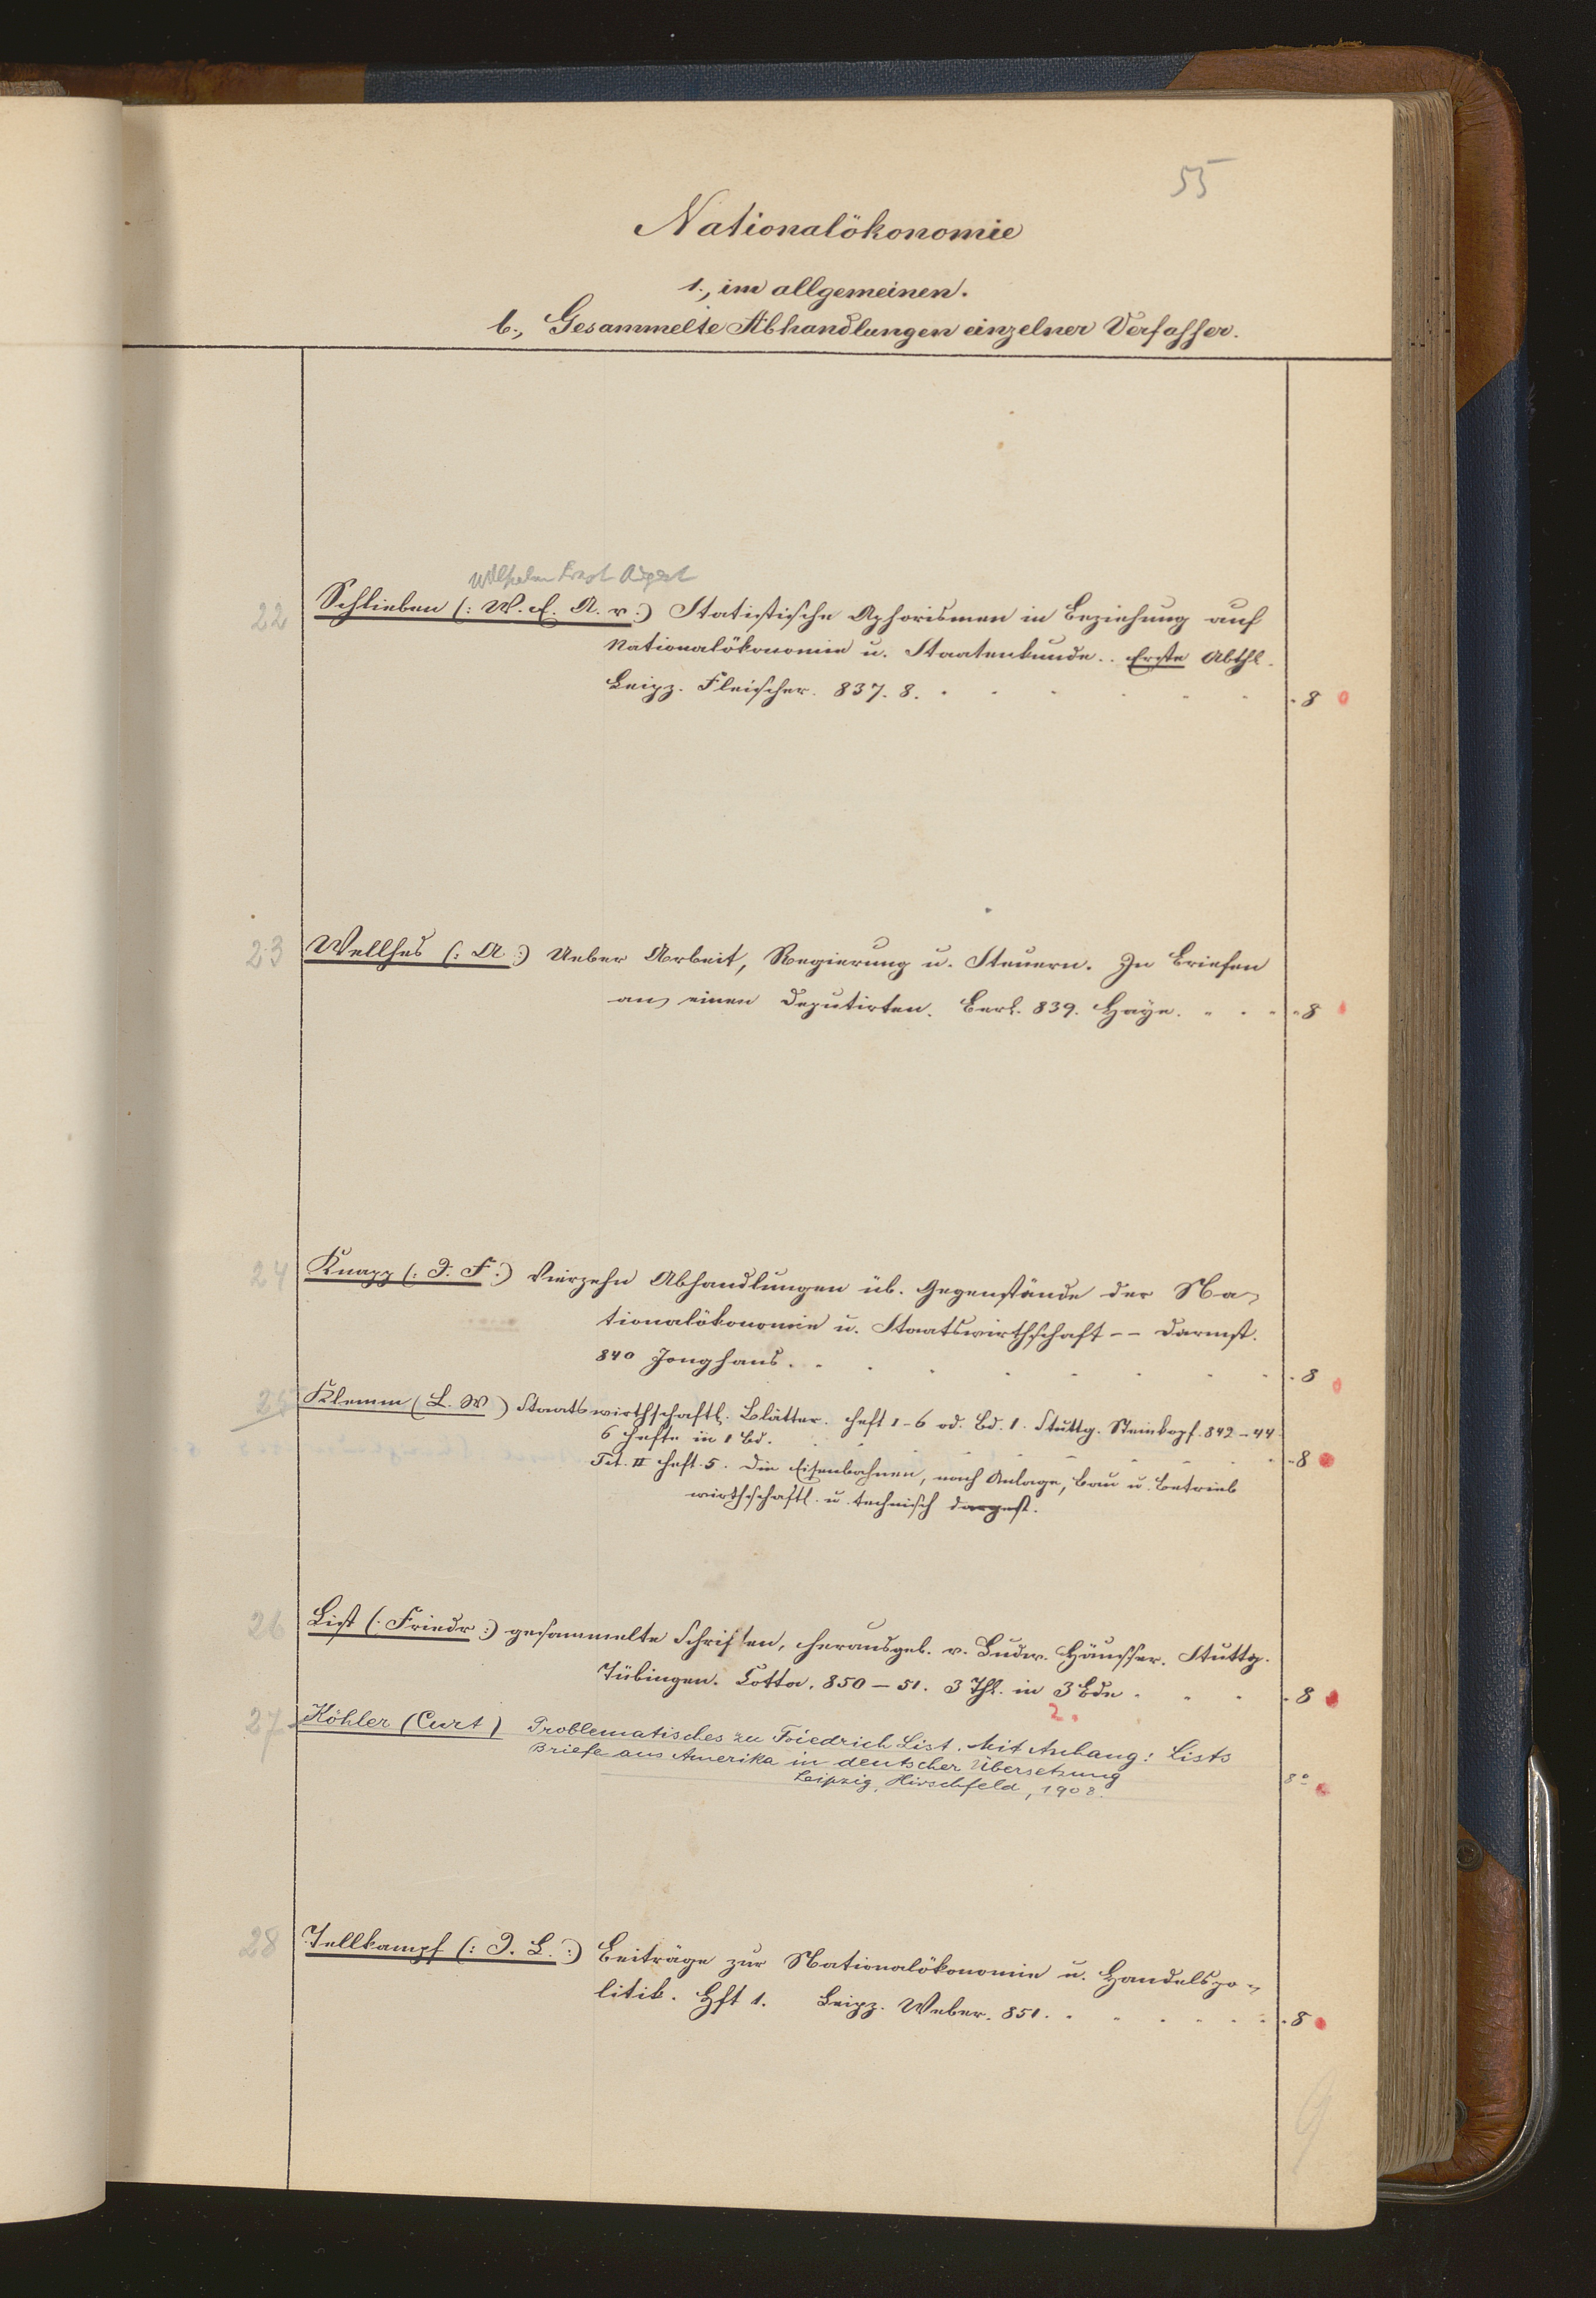 55
Nationalökonomie
1., im allgemeinen.
b., Gesammelte Abhandlungen einzelner Verfasser.
Wilhelm Ernst August
22 Schlieben (: W. E. A. v.:) Statistische Aphorismen in Beziehung auf
Nationalökonomie u. Staatenkunde.. Erste Abthl.
Leipz. Fleischer. 837. 8. . . . . . . 8
23 Wellhes (: A :) Ueber Arbeit, Regierung u. Steuern. In Briefen
an einen Deputirten. Berl. 839. Hayn. . . . 8
24 Knapp (: J. F.:) Vierzehn Abhandlungen üb. Gegenstände der Na-
tionalökonomie u. Staatswirthschaft -- Darmst.
840 Jonghaus. . . . . . . . . 8
25 Klemm (L. W) Staatswirthschaftl. Blätter. Heft 1-6 od. Bd. 1. Stuttg. Steinkopf. 842-44
6 Hefte in 1 Bd. . . . . . . . 8
Tit. II Heft. 5. Die Eisenbahnen, nach Anlage, Bau u. Betrieb
wirthschaftl. u. technisch dargest.
26 List (: Friedr :) gesammelte Schriften, herausgeb. v. Ludw. Häusser. Stuttg.
Tübingen. Cotta. 850-51. 3 Thl. in 3 Bde . . . 8
2.
27 Köhler (Curt) Problematisches zu Friedrich List. Mit Anhang: Lists
Briefe aus Amerika in deutscher Übersetzung
Leipzig, Hirschfeld, 1908. 8°
28 Tellkampf (: J. L. :) Beiträge zur Nationalökonomie u. Handelspo-
litik. Hft 1. Leipz. Weber. 851. . . . . . . 8
9